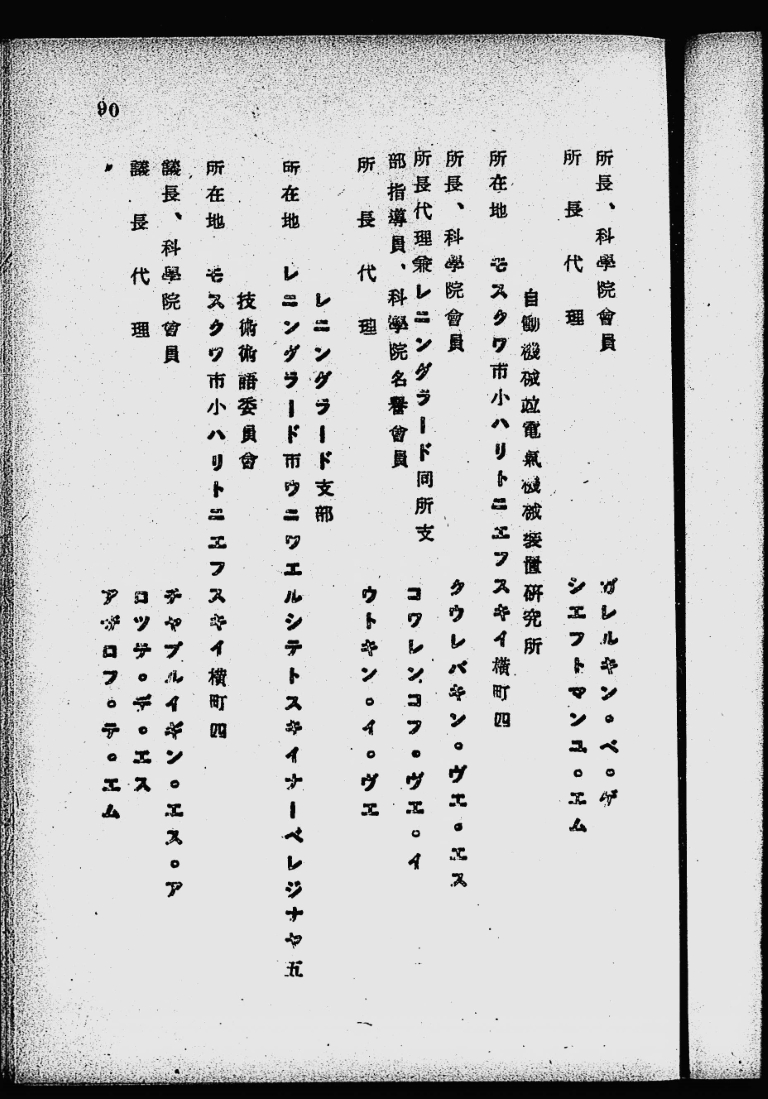 90
所長、科學院會員 ヴレルキン。ベ。ゲ
所長代理 シエフトマンユ。エム
自働機械竝電氣機械裝置硏究所
所在地 モスクワ市小ハリトニエフスキイ橫町四
所長、科學院會員 クウレバキン。ヴエ。エス
所長代理兼レニングラード同所支
部指導員、科學院名譽會員 コワレンコフ。ヴエ。イ
所長代理 ウトキン。イ。ヴエ
レニングラード支部
所在地 レニングラード市ウニワエルシテトスキイナーベレジナヤ五
技術術語委員會
所在地 モスクワ市小ハリトニエフスキイ橫町四
議長、科學院會員 チヤプルイギン。エス。ア
議長代理 ロツテ。デ。エス
〃 アザロフ。テ。エム